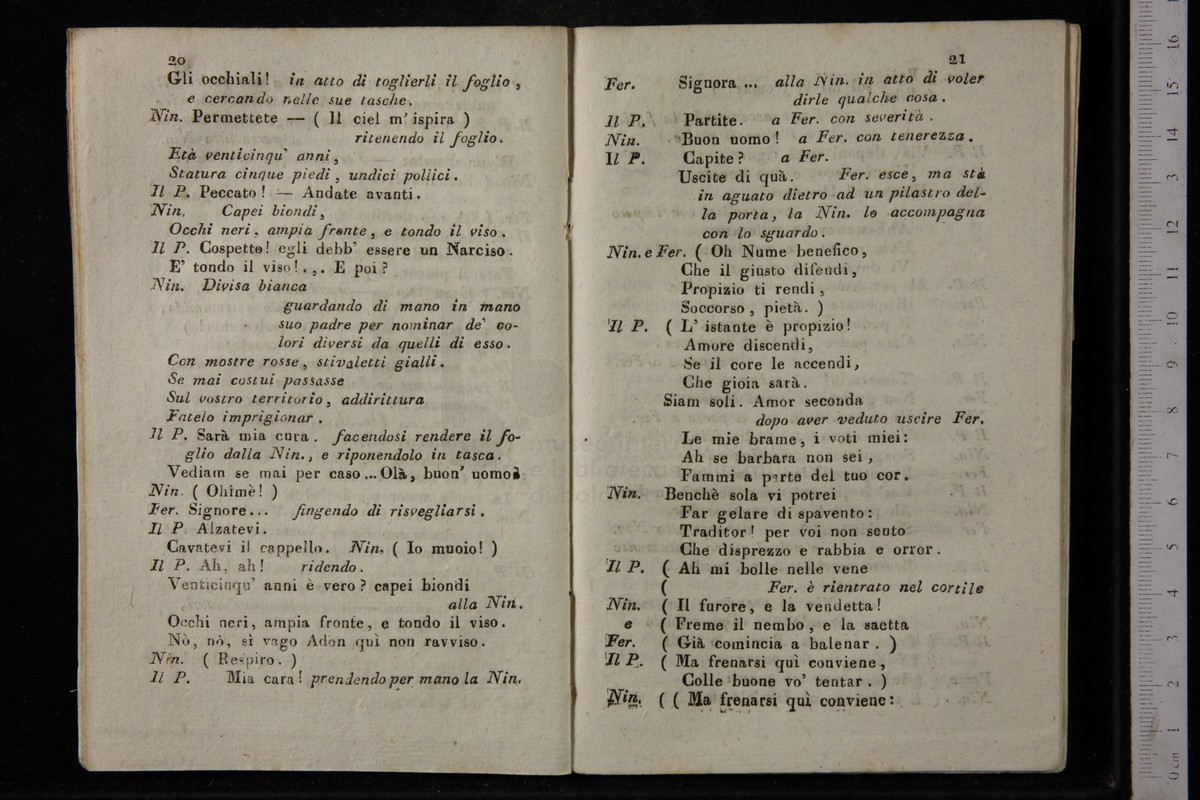 20
Gli occhiali! in atto di toglierli il foglio,
e cercando nelle sue tasche.
Nin. Permettete — ( Il ciel m' ispira )
ritenendo il foglio.
Età venticinqu' anni,
Statura cinque piedi, undici pollici.
Il P. Peccato! — Andate avanti.
Nin. Capei biondi,
Occhi neri, ampia fronte, e tondo il viso.
Il P. Cospetto! egli debb' essere un Narciso.
E' tondo il viso!.,. E poi?
Nin. Divisa bianca
guardando di mano in mano
suo padre per nominar de' co-
lori diversi da quelli di esso.
Con mostre rosse, stivaletti gialli.
Se mai costui passasse
Sul vostro territorio, addirittura
Fatelo imprigionar.
Il P. Sarà mia cura. facendosi rendere il fo-
glio dalla Nin., e riponendolo in tasca.
Vediam se mai per caso... Olà, buon' uomo!
Nin. ( Ohimè! )
Fer. Signore... fingendo di risvegliarsi.
Il P. Alzatevi.
Cavatevi il cappello. Nin. ( Io muoio! )
Il P. Ah, ah! ridendo.
Venticinqu' anni è vero? capei biondi
alla Nin.
Occhi neri, ampia fronte, e tondo il viso.
Nò, nò, sì vago Adon quì non ravviso.
Nin. ( Respiro. )
Il P. Mia cara! prendendo per mano la Nin.
21
Fer. Signora ... alla Nin. in atto di voler
dirle qualche cosa.
Il P. Partite. a Fer. con severità.
Nin. Buon uomo! a Fer. con tenerezza.
Il P. Capite? a Fer.
Uscite di quà. Fer. esce, ma stà
in aguato dietro ad un pilastro del-
la porta, la Nin. lo accompagna
con lo sguardo.
Nin. e Fer. ( Oh Nume benefico,
Che il giusto difendi,
Propizio ti rendi,
Soccorso, pietà. )
Il P. ( L' istante è propizio!
Amore discendi,
Se il core le accendi,
Che gioia sarà.
Siam soli. Amor seconda
dopo aver veduto uscire Fer.
Le mie brame, i voti miei:
Ah se barbara non sei,
Fammi a parte del tuo cor.
Nin. Benchè sola vi potrei
Far gelare di spavento:
Traditor! per voi non sento
Che disprezzo e rabbia e orror.
Il P. ( Ah mi bolle nelle vene
( Fer. è rientrato nel cortile
Nin. ( Il furore, e la vendetta!
e ( Freme il nembo, e la saetta
Fer. ( Già comincia a balenar. )
Il P. ( Ma frenarsi quì conviene,
Colle buone vo' tentar. )
Nin. ( ( Ma frenarsi quì conviene:
0 cm 1 2 3 4 5 6 7 8 9 10 11 12 13 14 15 16